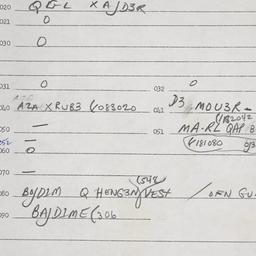 020 QGL XAJD3R
021 0
030 0
031 0 032 0
040 AZA XRUB3 (083020 041 D3 MOU3R-
(1182042
050 — 051 MA-RL QAP B
052 (181080
060 0
070 —
(548
080 BOJDIM Q HENG3N VEST / OFN GU
090 BAJDIME (306